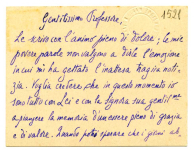 1521
Gentilissimo Professore,
Le scrivo coll'animo pieno di dolore; le mie
povere parole non valgono a dirle l'emozione
in cui mi ha gettato l'inattesa tragica noti-
zia. Voglia credere che in questo momento io
sono tutto con Lei e con la Signora sua gentil.ma
a piangere la memoria d'un essere pieno di grazia
e di valore. Quanto potei sperare che i primi